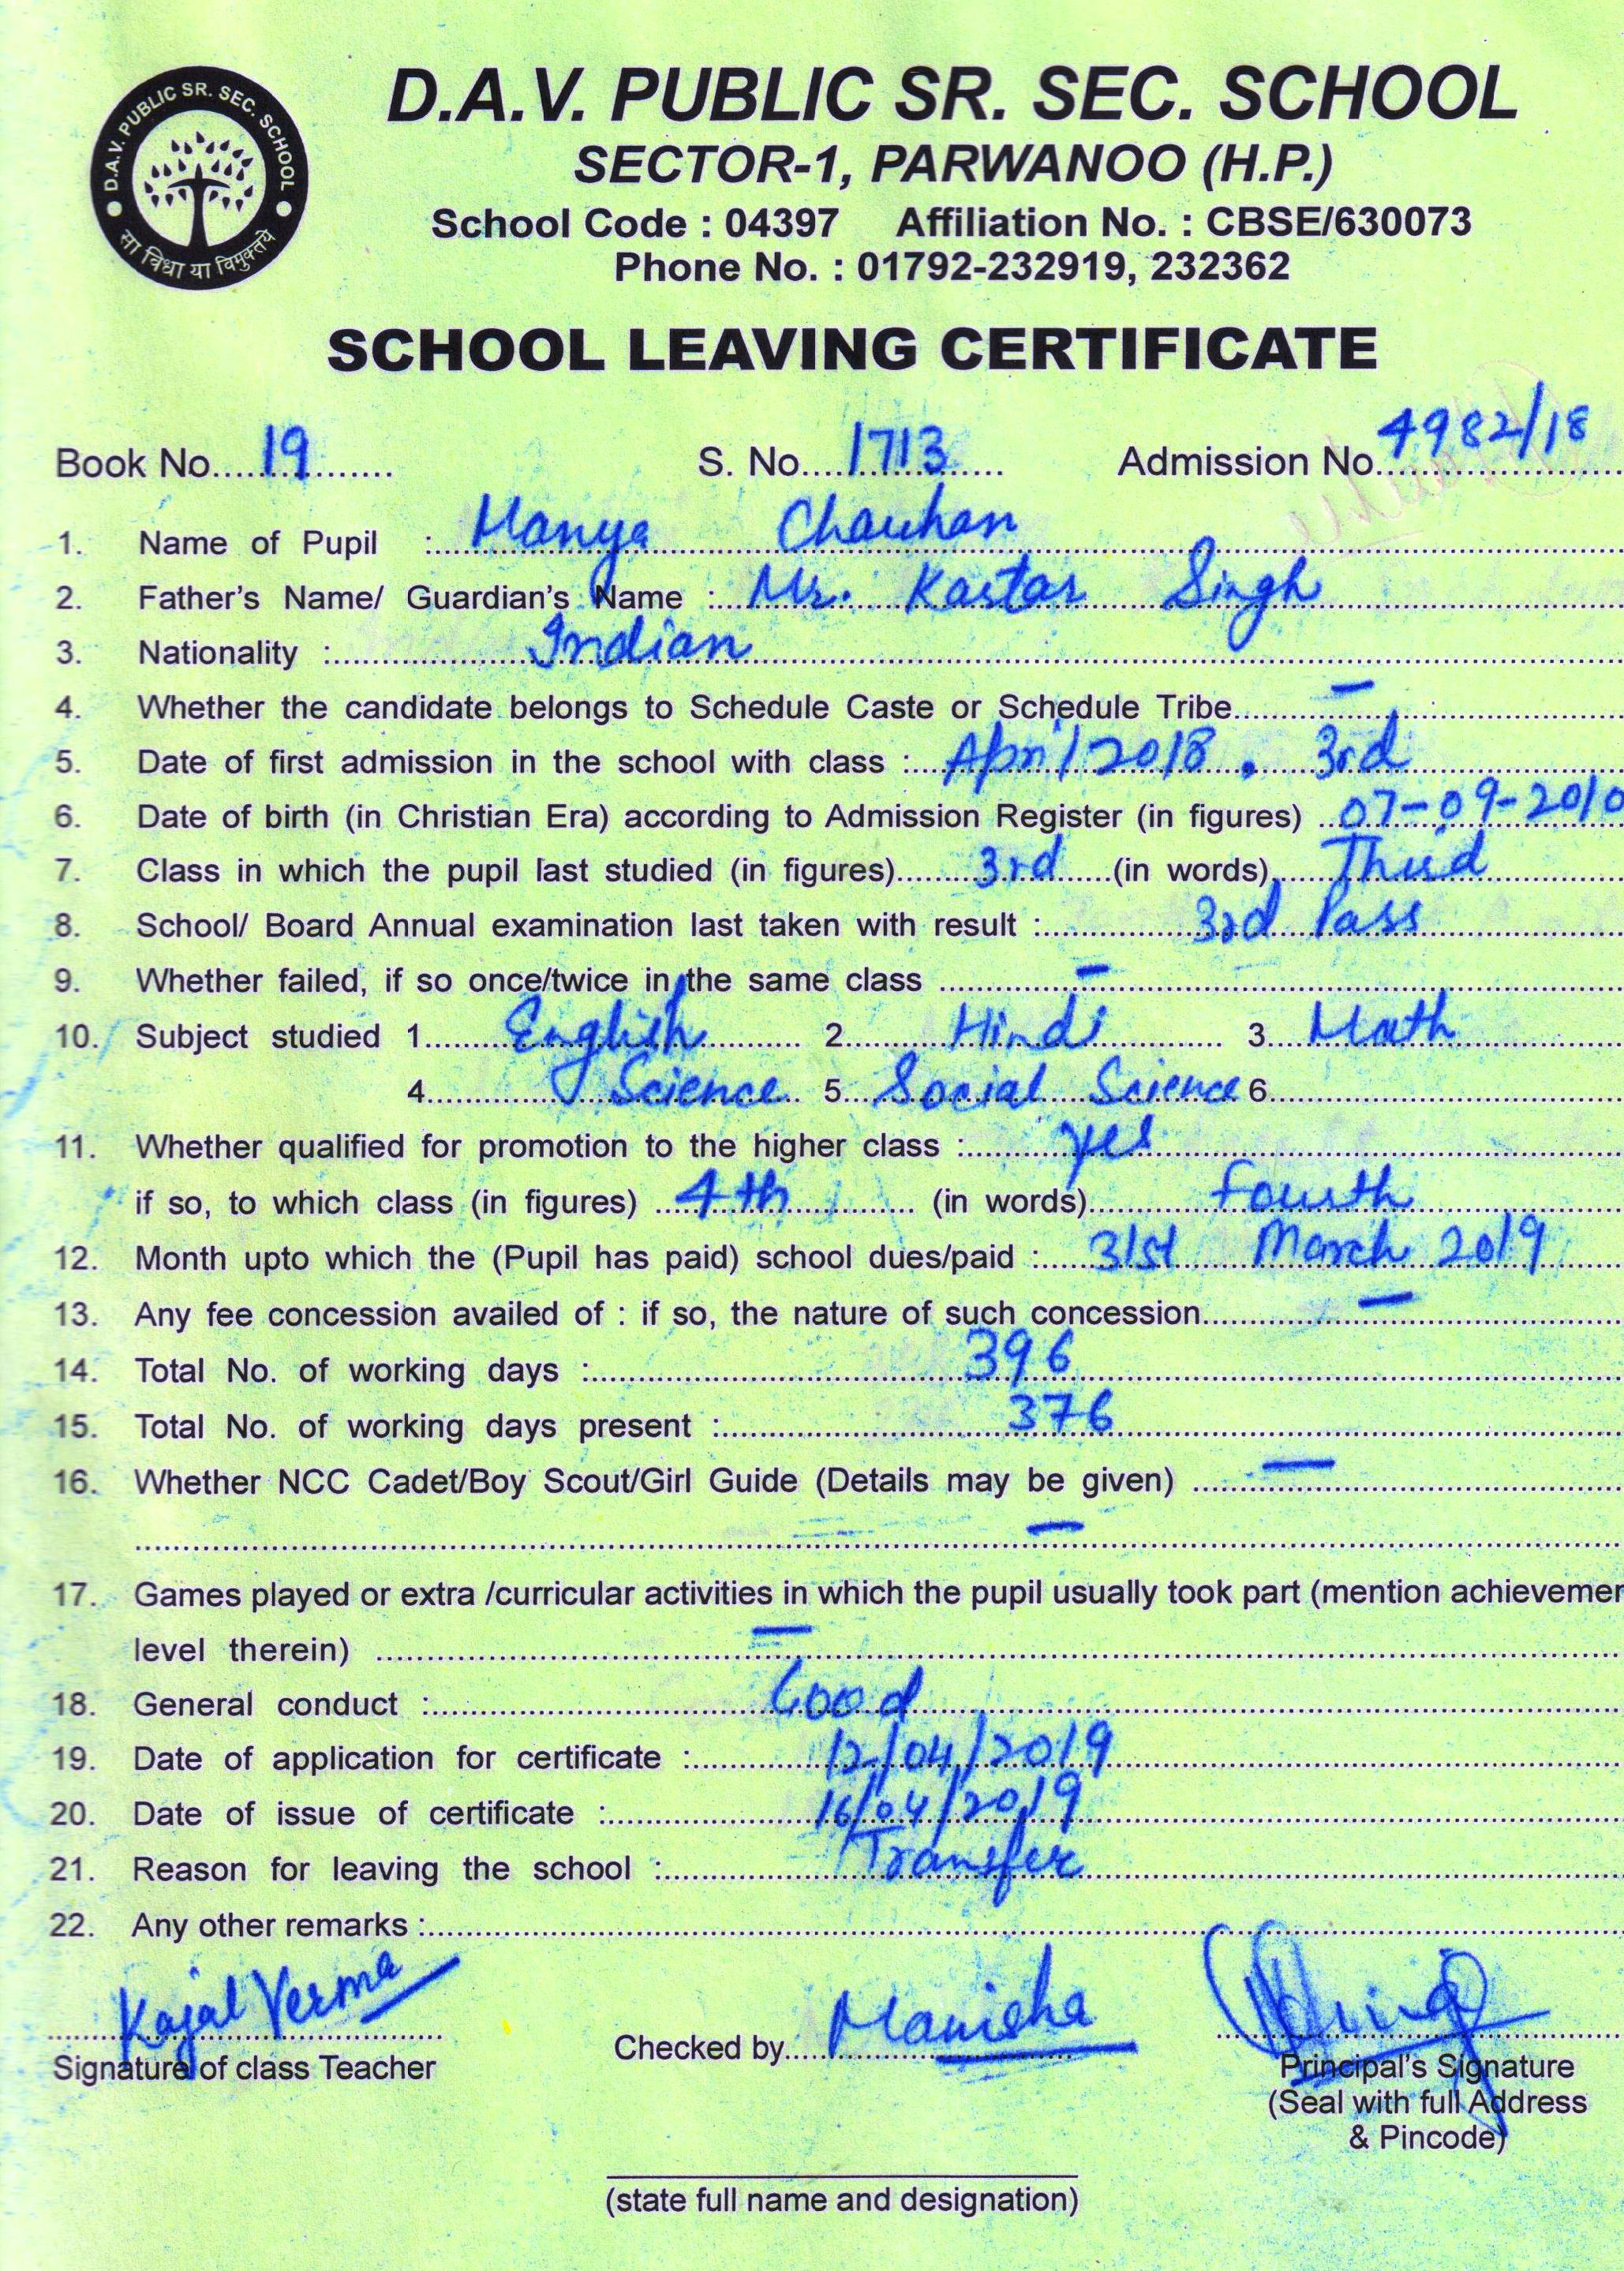 D.A.V. PUBLIC SR. SEC. SCHOOL
सा विद्या या विमुक्तये
D.A.V. PUBLIC SR. SEC. SCHOOL
SECTOR-1, PARWANOO (H.P.)
School Code : 04397 Affiliation No. : CBSE/630073
Phone No. : 01792-232919, 232362
SCHOOL LEAVING CERTIFICATE
Book No. 19 S. No. 1713 Admission No. 4982/18
1. Name of Pupil : Manya Chauhan
2. Father's Name/ Guardian's Name : Mr. Kartar Singh
3. Nationality : Indian
4. Whether the candidate belongs to Schedule Caste or Schedule Tribe —
5. Date of first admission in the school with class : April 2018, 3rd
6. Date of birth (in Christian Era) according to Admission Register (in figures) 07-09-2010
7. Class in which the pupil last studied (in figures) 3rd (in words) Third
8. School/ Board Annual examination last taken with result : 3rd Pass
9. Whether failed, if so once/twice in the same class —
10. Subject studied 1. English 2. Hindi 3. Math
4. Science 5. Social Science 6.
11. Whether qualified for promotion to the higher class : yes
if so, to which class (in figures) 4th (in words) Fourth
12. Month upto which the (Pupil has paid) school dues/paid : 31st March 2019
13. Any fee concession availed of : if so, the nature of such concession —
14. Total No. of working days : 396
15. Total No. of working days present : 376
16. Whether NCC Cadet/Boy Scout/Girl Guide (Details may be given) —
—
17. Games played or extra /curricular activities in which the pupil usually took part (mention achievemen
level therein) —
18. General conduct : Good
19. Date of application for certificate : 12/04/2019
20. Date of issue of certificate : 16/04/2019
21. Reason for leaving the school : Transfer
22. Any other remarks :
Kajal Verma
Signature of class Teacher
Checked by Manisha
Principal's Signature
(Seal with full Address
& Pincode)
(state full name and designation)